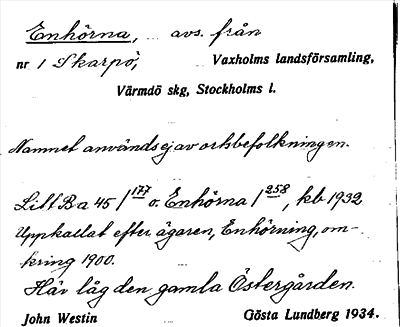 Enhörna, avs. från
nr 1 Skarpö, Vaxholms landsförsamling,
Värmdö skg, Stockholms l.
Namnet användes ej av ortsbefolkningen.
Litt B a 45/177 o. Enhörna 1/258, kb 1932.
Uppkallat efter ägaren, Enhörning, om-
kring 1900.
Här låg den gamla Östergården.
John Westin Gösta Lundberg 1934.